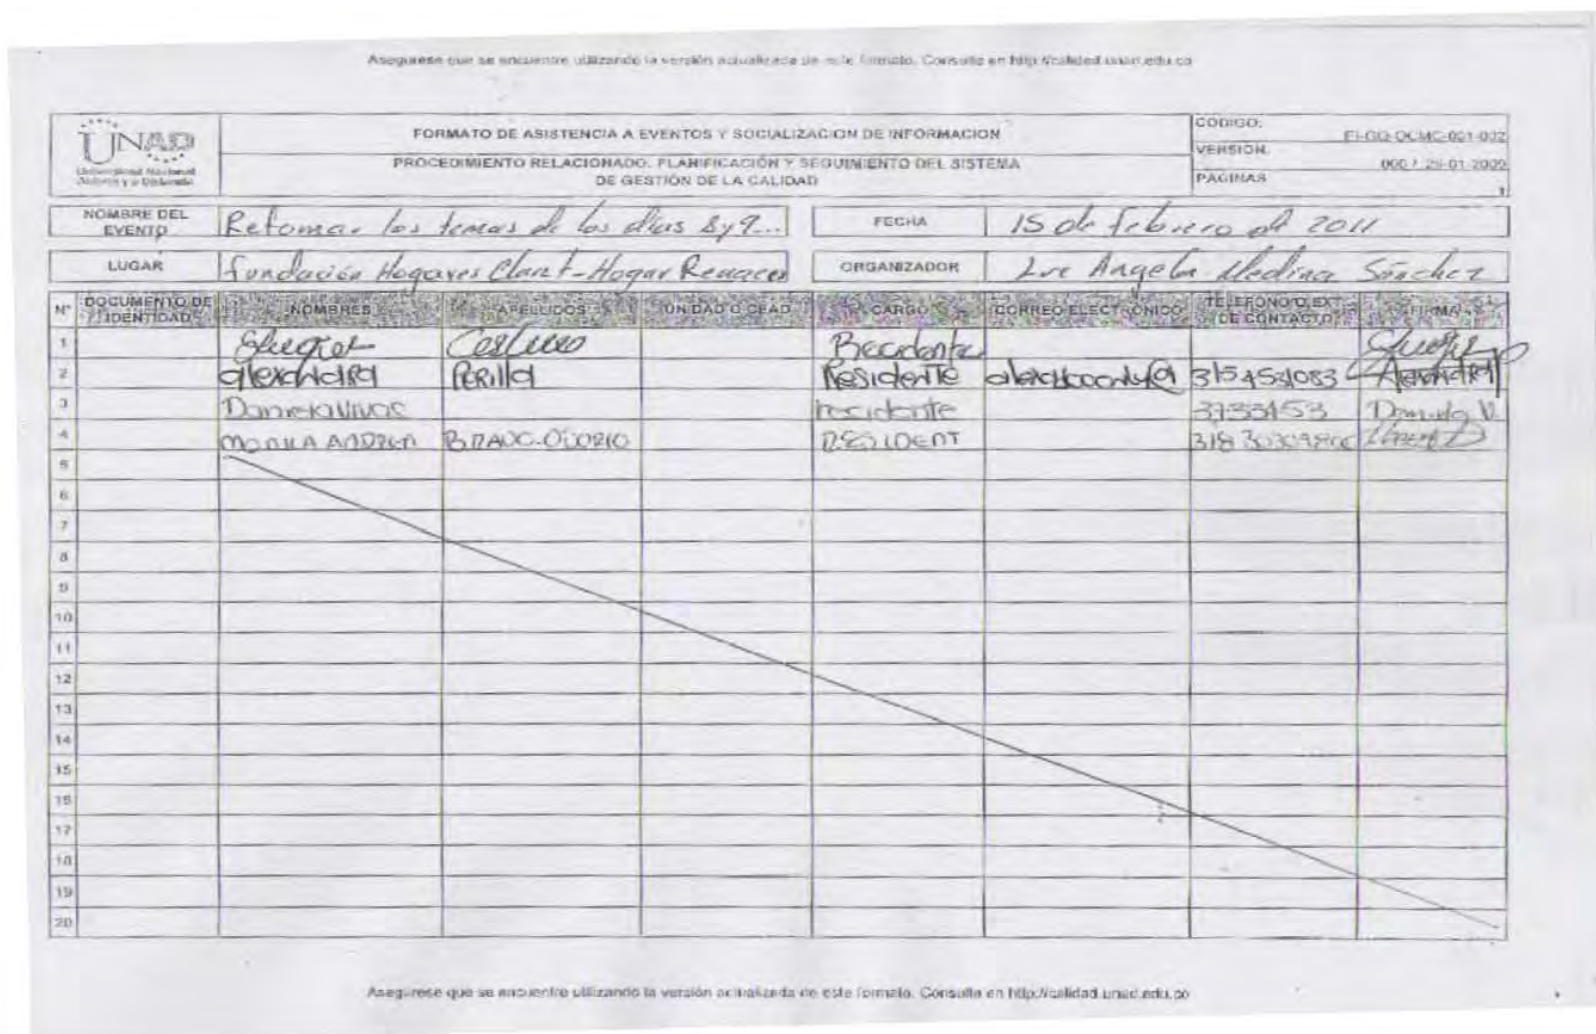 Asegurese que se encuentre utilizando la versión actualizada de este formato. Consulte en http://calidad.unad.edu.co
UNAD
Universidad Nacional
Abierta y a Distancia
FORMATO DE ASISTENCIA A EVENTOS Y SOCIALIZACION DE INFORMACION
PROCEDIMIENTO RELACIONADO: PLANIFICACIÓN Y SEGUIMIENTO DEL SISTEMA
DE GESTIÓN DE LA CALIDAD
CODIGO:
VERSION:
PAGINAS
1
NOMBRE DEL EVENTO Retomar los temas de los días 8 y 9... FECHA 15 de febrero de 2011
LUGAR Fundación Hogares Claret - Hogar Renacer ORGANIZADOR Angela Medina Sánchez
N° DOCUMENTO DE IDENTIDAD NOMBRES APELLIDOS UNIDAD O CEAD CARGO CORREO ELECTRÓNICO TELEFONO O EXT. DE CONTACTO FIRMA
1
2 alexandra Perilla Residente 3154531083 Alexandra
3 Daniela Vivas recidente Daniela V.
4 MONICA ANDREA RESIDENT
5
6
7
8
9
10
11
12
13
14
15
16
17
18
19
20
Asegurese que se encuentre utilizando la versión actualizada de este formato. Consulte en http://calidad.unad.edu.co